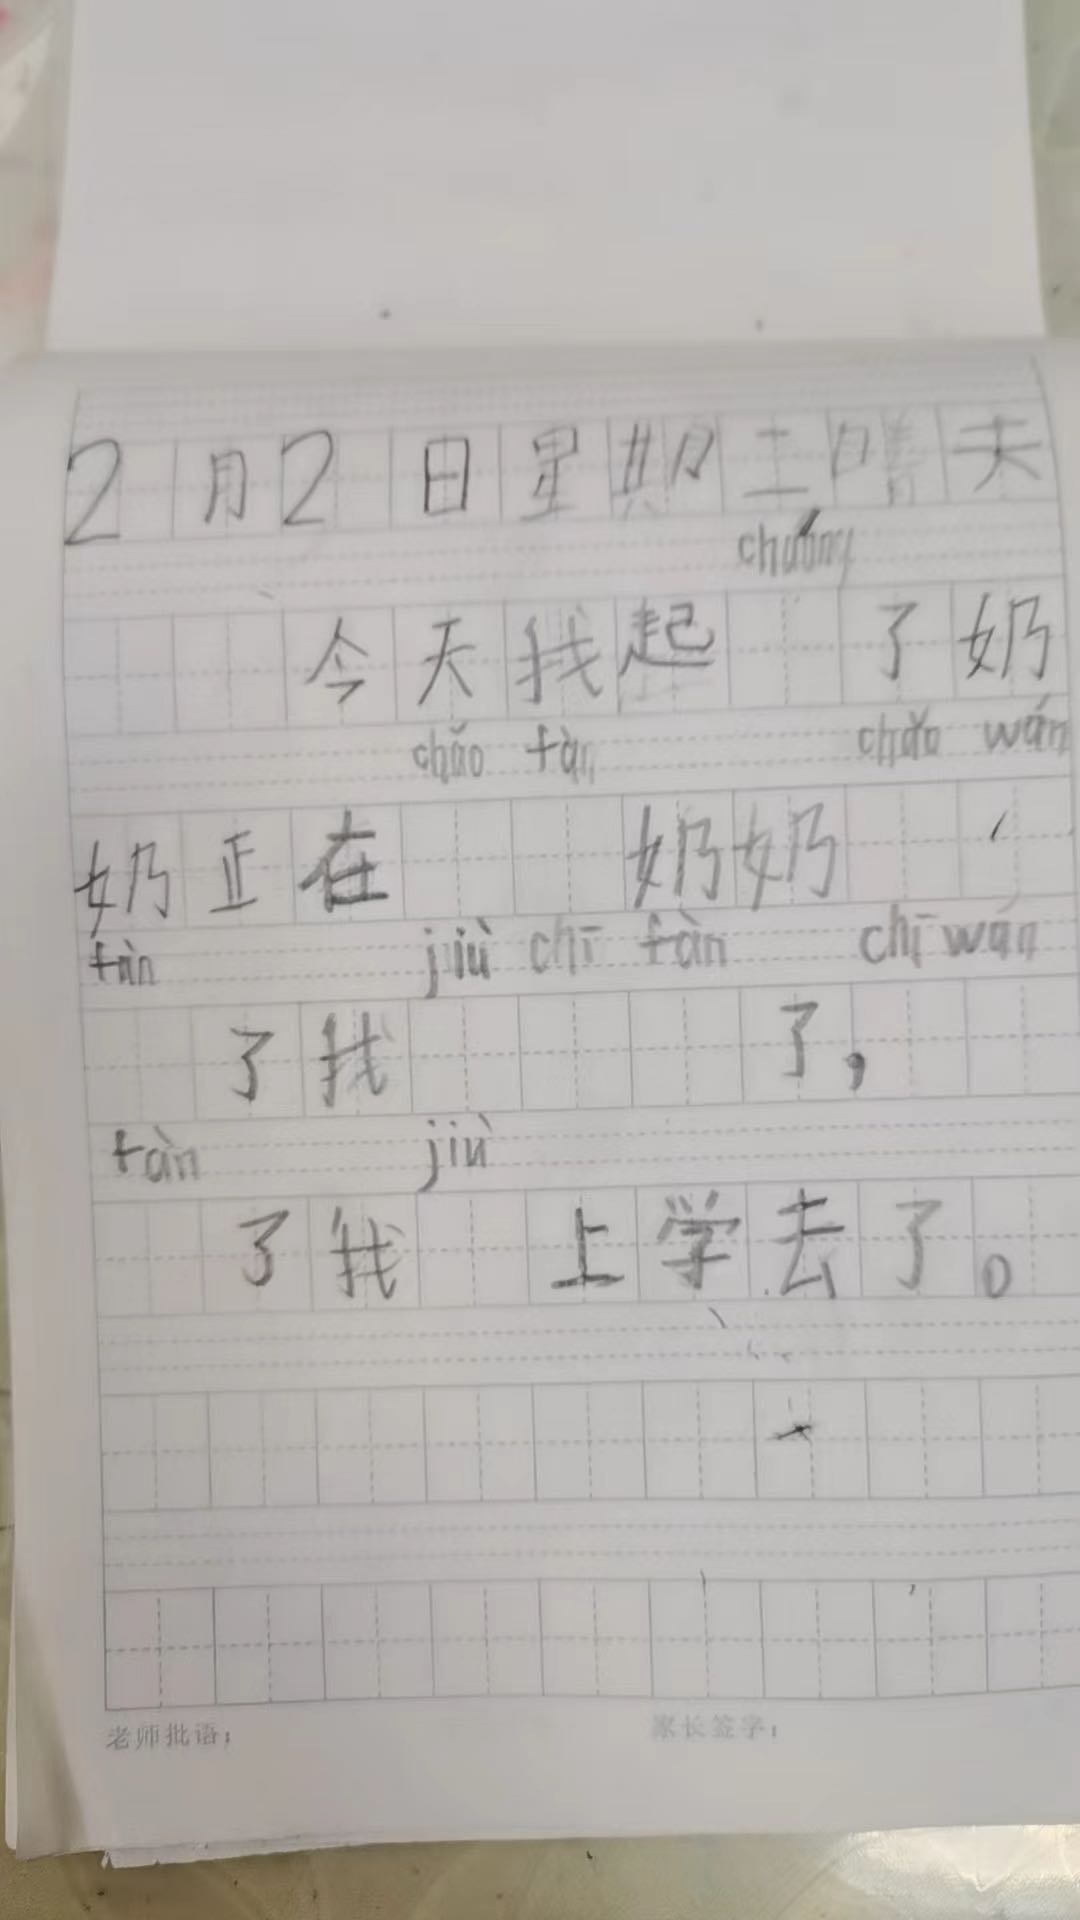 2月2日星期土晴天
chuáng
今天找起 了奶
chǎo fàn chǎo wán
奶正在 奶奶
fàn jiù chī fàn chī wán
了找 了，
fàn jiù
了我 上学去了。
老师批语：家长签字：